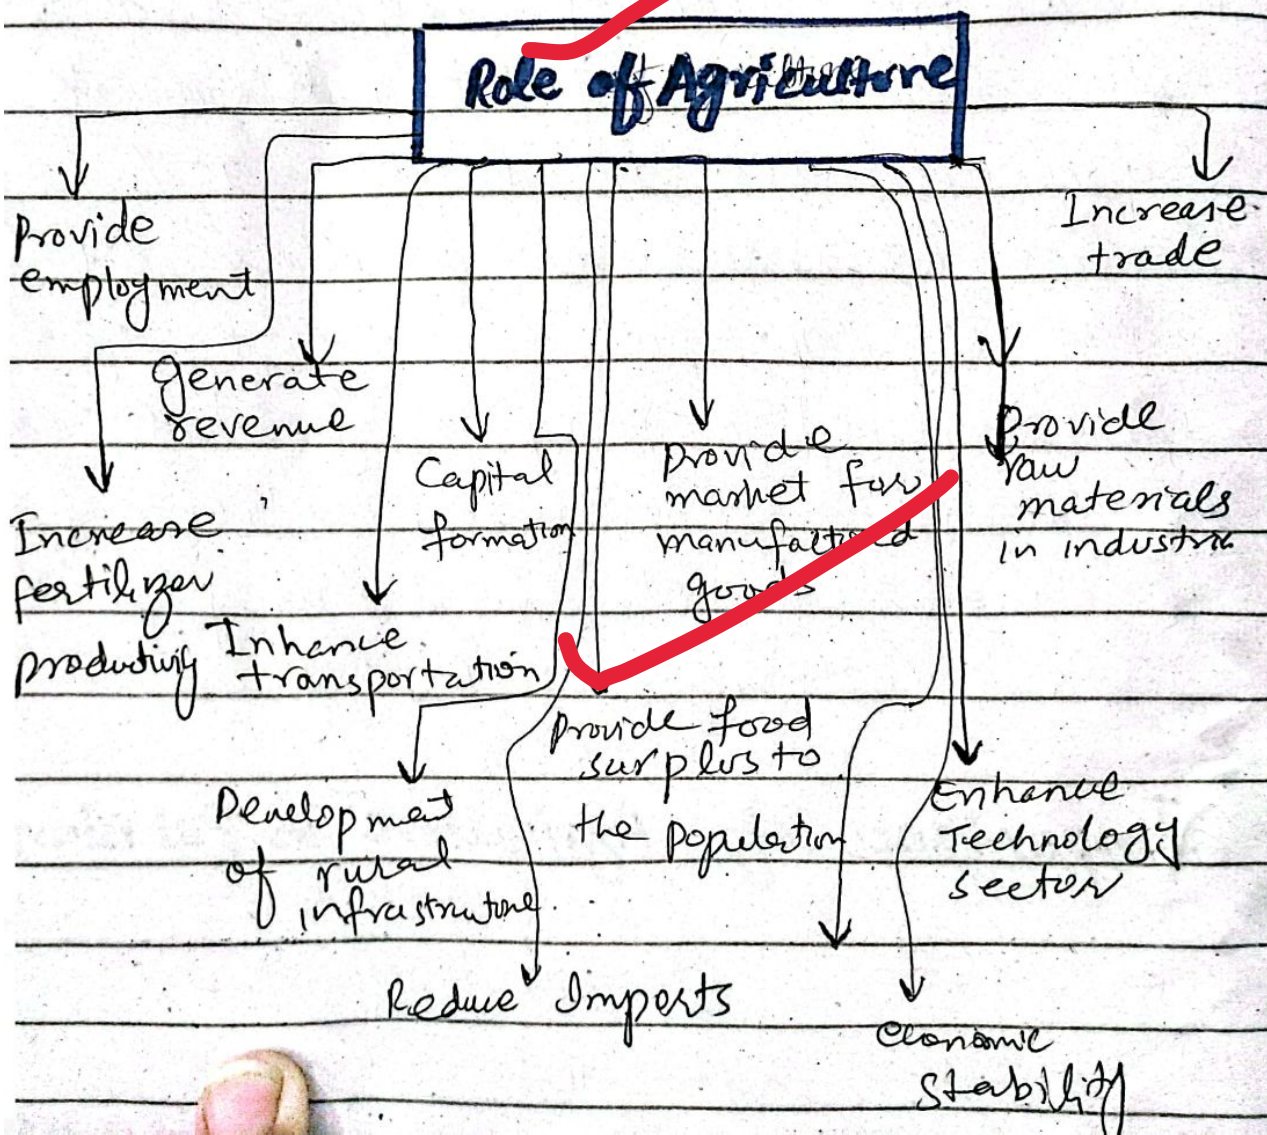 Role of Agriculture
Provide
employment
Increase
trade
Generate
revenue
Capital
formation
Provide
market for
manufactured
goods
Provide
raw
materials
in industries
Increase
fertilizer
productivity
Inhance
transportation
Provide food
surplus to
the population
Development
of rural
infrastructure
Enhance
Technology
sector
Reduce Imports
economic
stability